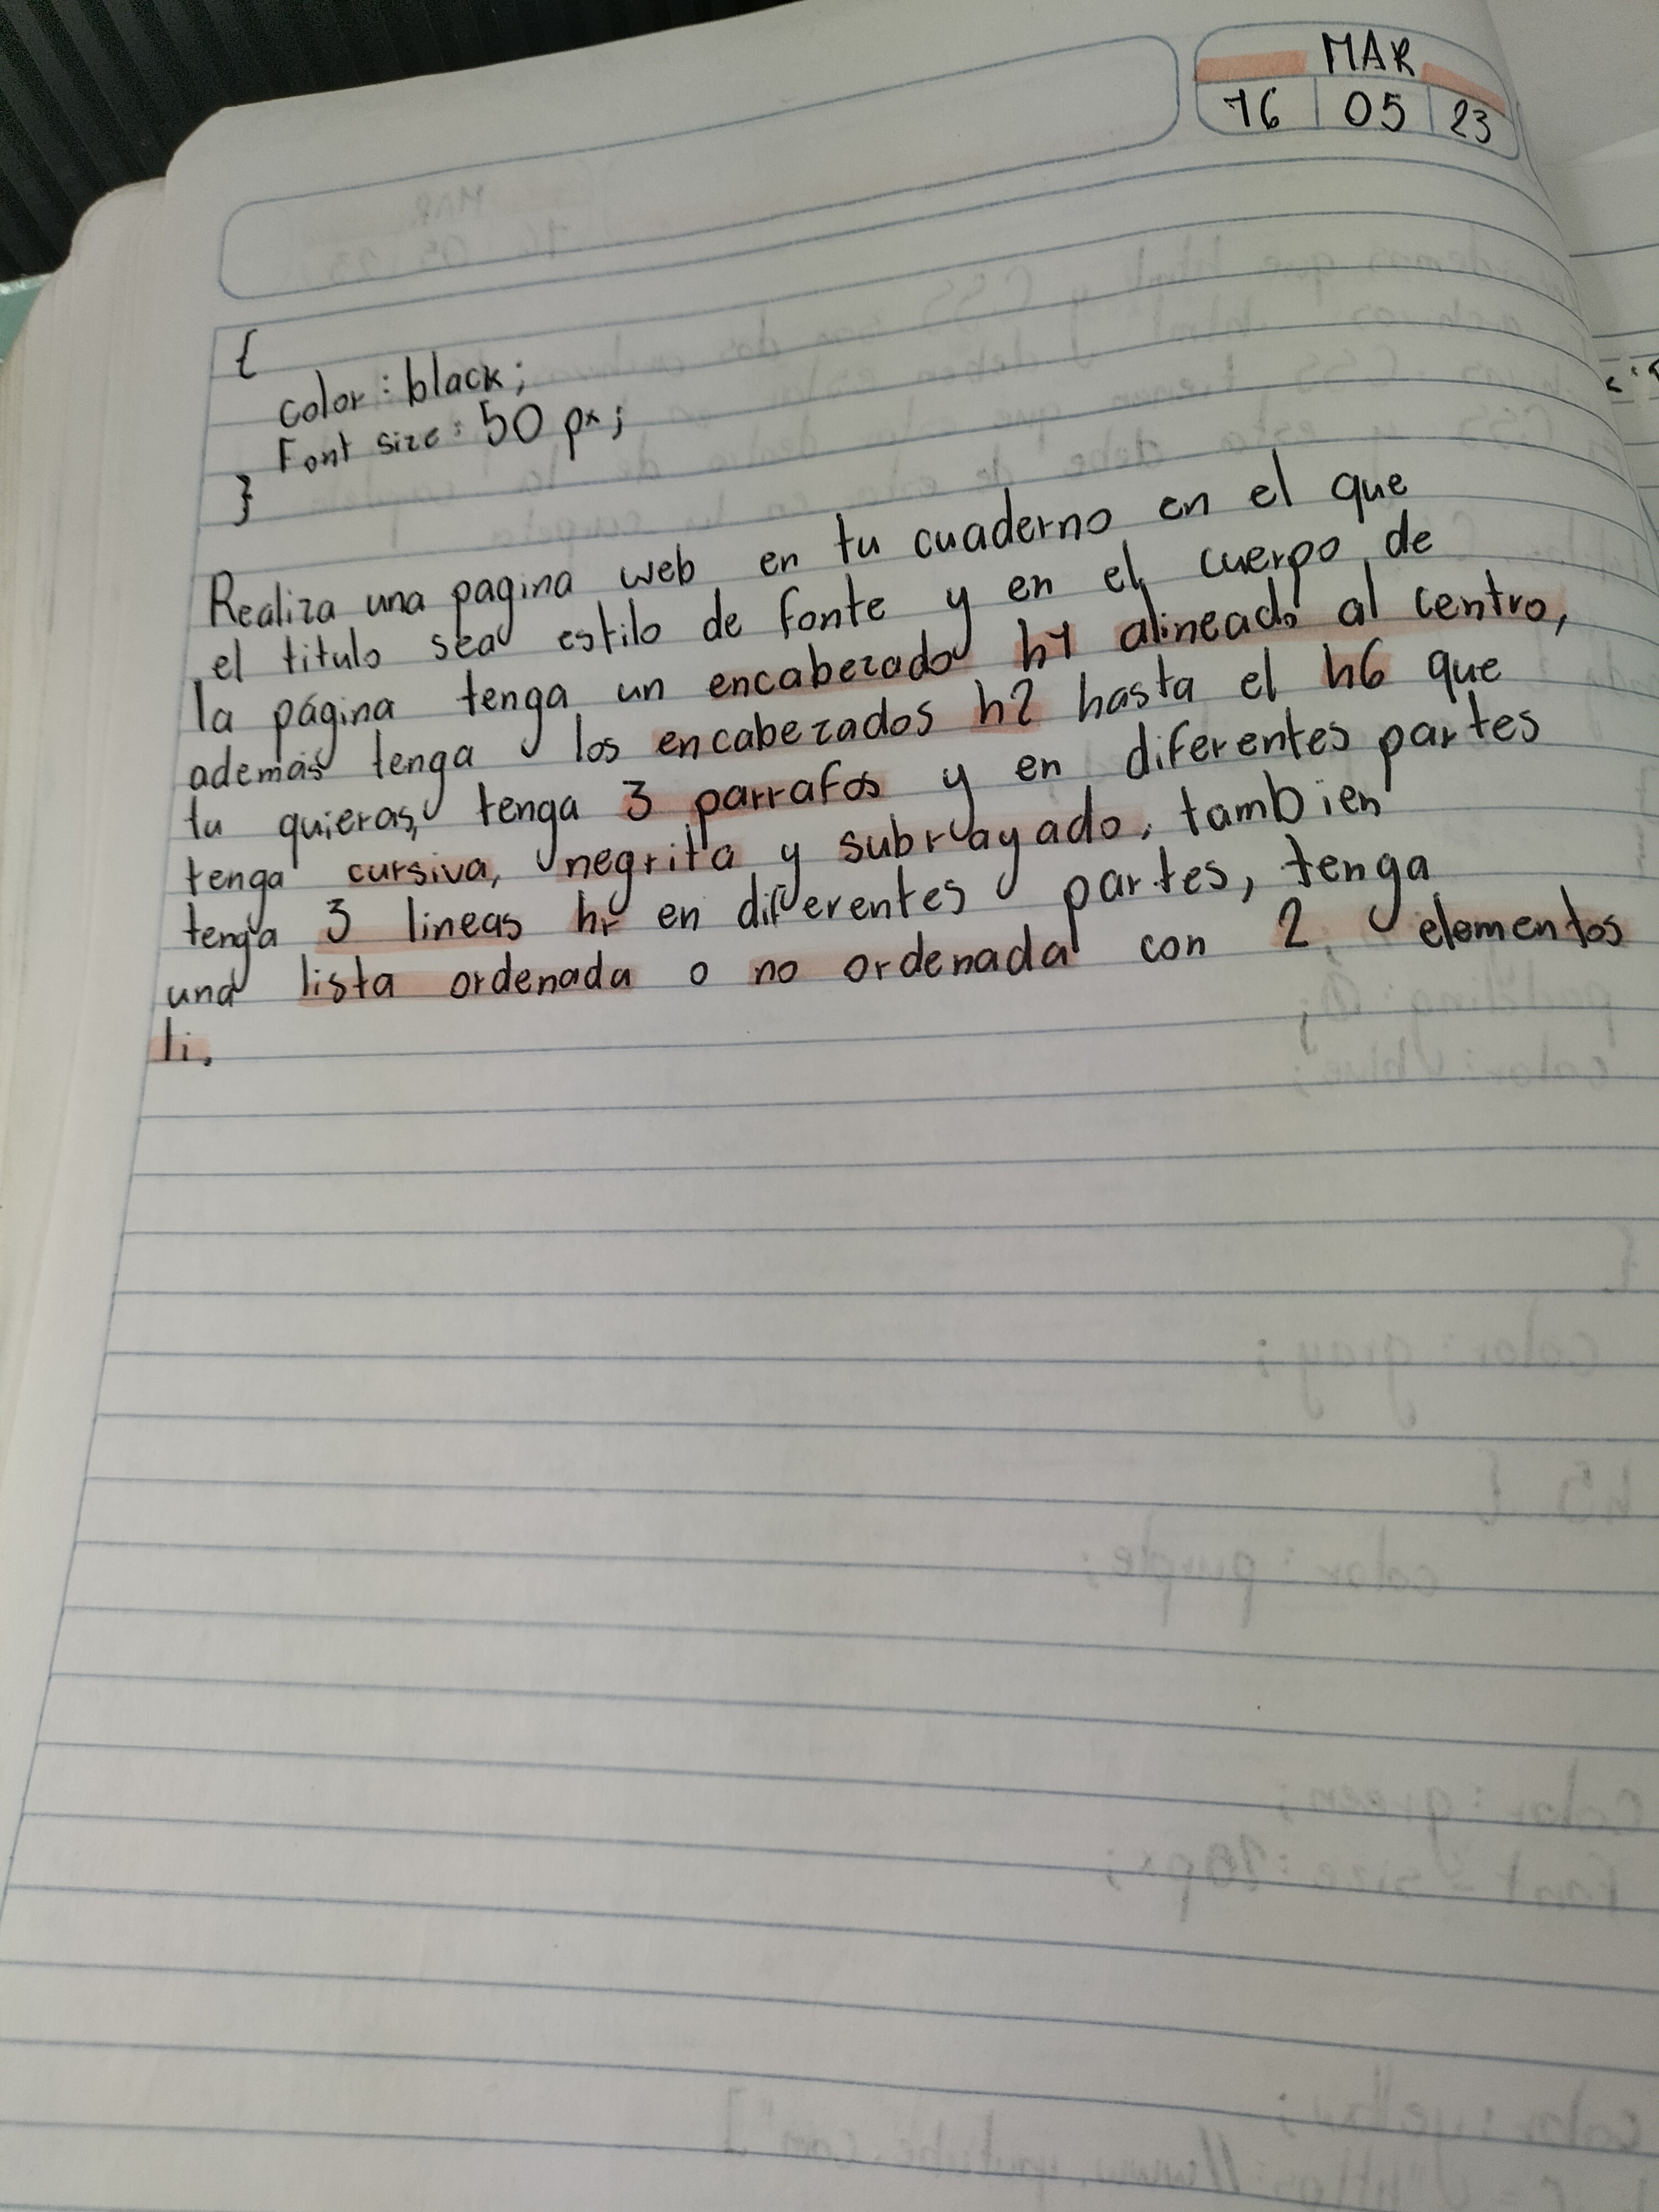 MAR
16 05 23
{
color: black;
Font size: 50 px;
}
Realiza una pagina web en tu cuaderno en el que
el titulo sea estilo de fonte y en el cuerpo de
la página tenga un encabezado h1 alineado al centro,
además tenga los encabezados h2 hasta el h6 que
tu quieras, tenga 3 parrafos y en diferentes partes
tenga cursiva, negrita y subrayado, tambien
tenga 3 lineas hr en diferentes partes, tenga
una lista ordenada o no ordenada con 2 elementos
li.